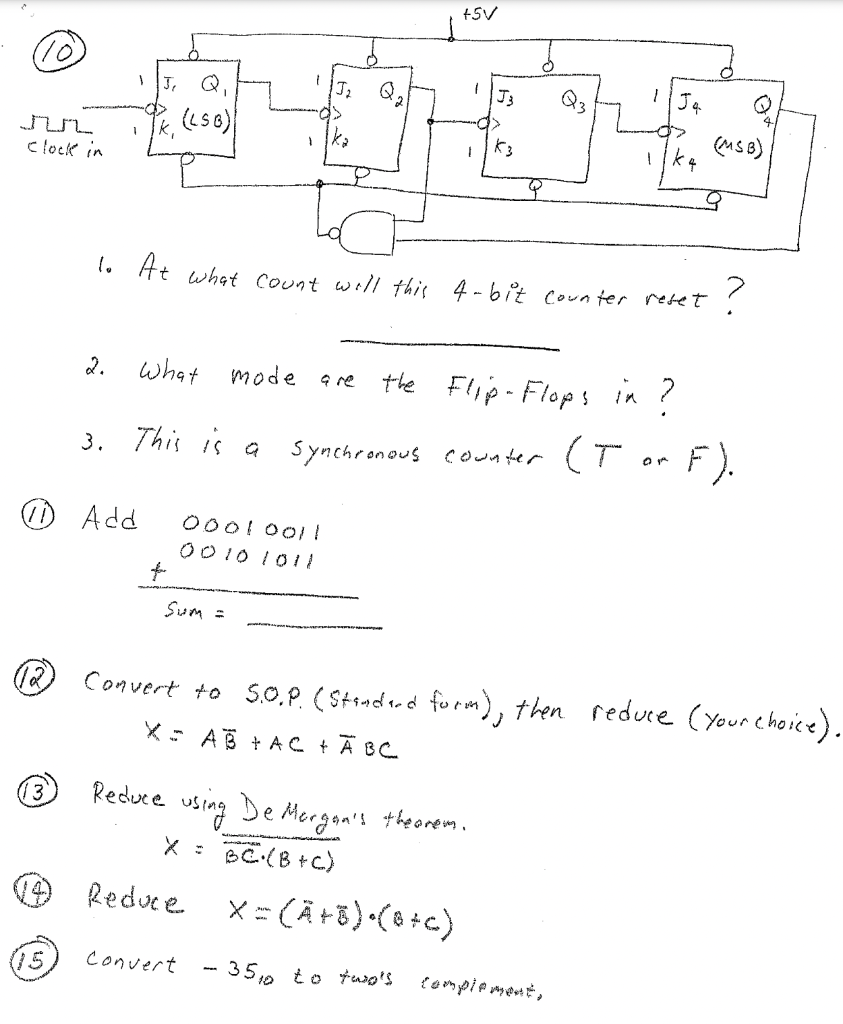 +5V
10
1 J₁ Q₁ 1 J₂ Q₂ 1 J₃ Q₃ 1 J₄ Q₄
(LSB) (MSB)
1 K₁ 1 K₂ 1 K₃ 1 K₄
Clock in
1. At what count will this 4-bit counter reset?
2. What mode are the Flip-Flops in?
3. This is a synchronous counter (T or F).
11 Add 00010011
00101011
+
Sum =
12 Convert to S.O.P. (Standard form), then reduce (Your choice).
X = AB̅ + AC + A̅BC
13 Reduce using De Morgan's theorem.
X = B̅C̅·(B+C)
14 Reduce X=(A̅+B̅)·(B+C)
15 Convert -35₁₀ to two's complement.